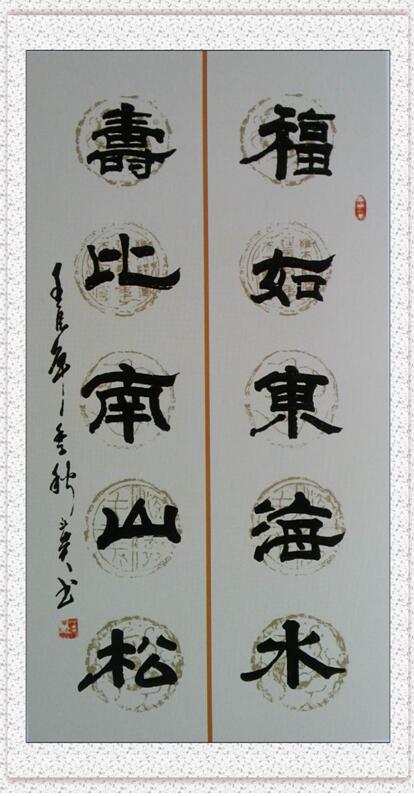 福如東海水
壽比南山松
壬辰年季秋
书